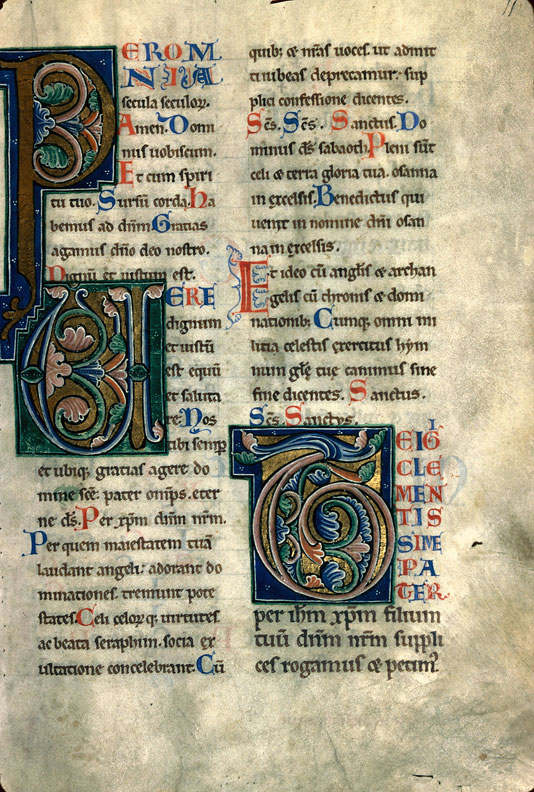 PEROM
NIA
secula seculoꝝ.
Amen. Domi
nus uobiscum.
Et cum spiri
tu tuo. Sursũ corda. ha
bemus ad dñm. Gratias
agamus dño deo nostro.
Dignũ et iustum est.
UERE
dignum
et iustũ
est equũ
et saluta
re. Nos
tibi semꝑ
et ubiqꝫ gratias agere. do
mine scẽ. pater omñps. eter
ne dš. Per xp̃m dñm nr̃m.
Per quem maiestatem tuã
laudant angeli. adorant do
minationes. tremunt pote
states. Celi celoꝝ qꝫ uirtutes.
ac beata seraphim. socia ex
ultatione concelebrant. Cũ
quibꝫ & nr̃as uoces. ut admit
ti iubeas deprecamur. sup
plici confessione dicentes.
Scs̃. Scs̃. Sanctus. Do
minus dš sabaoth. Pleni sũt
celi & terra gloria tua. osanna
in excelsis. Benedictus qui
uenit in nomine dñi osan
na in excelsis.
Et ideo cũ angl̃is & archan
gelis cũ thronis & domi
nationibꝫ. Cumqꝫ omni mi
litia celestis exercitus hym
num gl̃e tue canimus sine
fine dicentes. Sanctus.
Scs̃. Sanctus.
TEIG
I
CLE
MEN
TIS
SIME
PA
TER.
per ihm̃ xp̃m filium
tuũ dñm nr̃m suppli
ces rogamus & petimꝰ